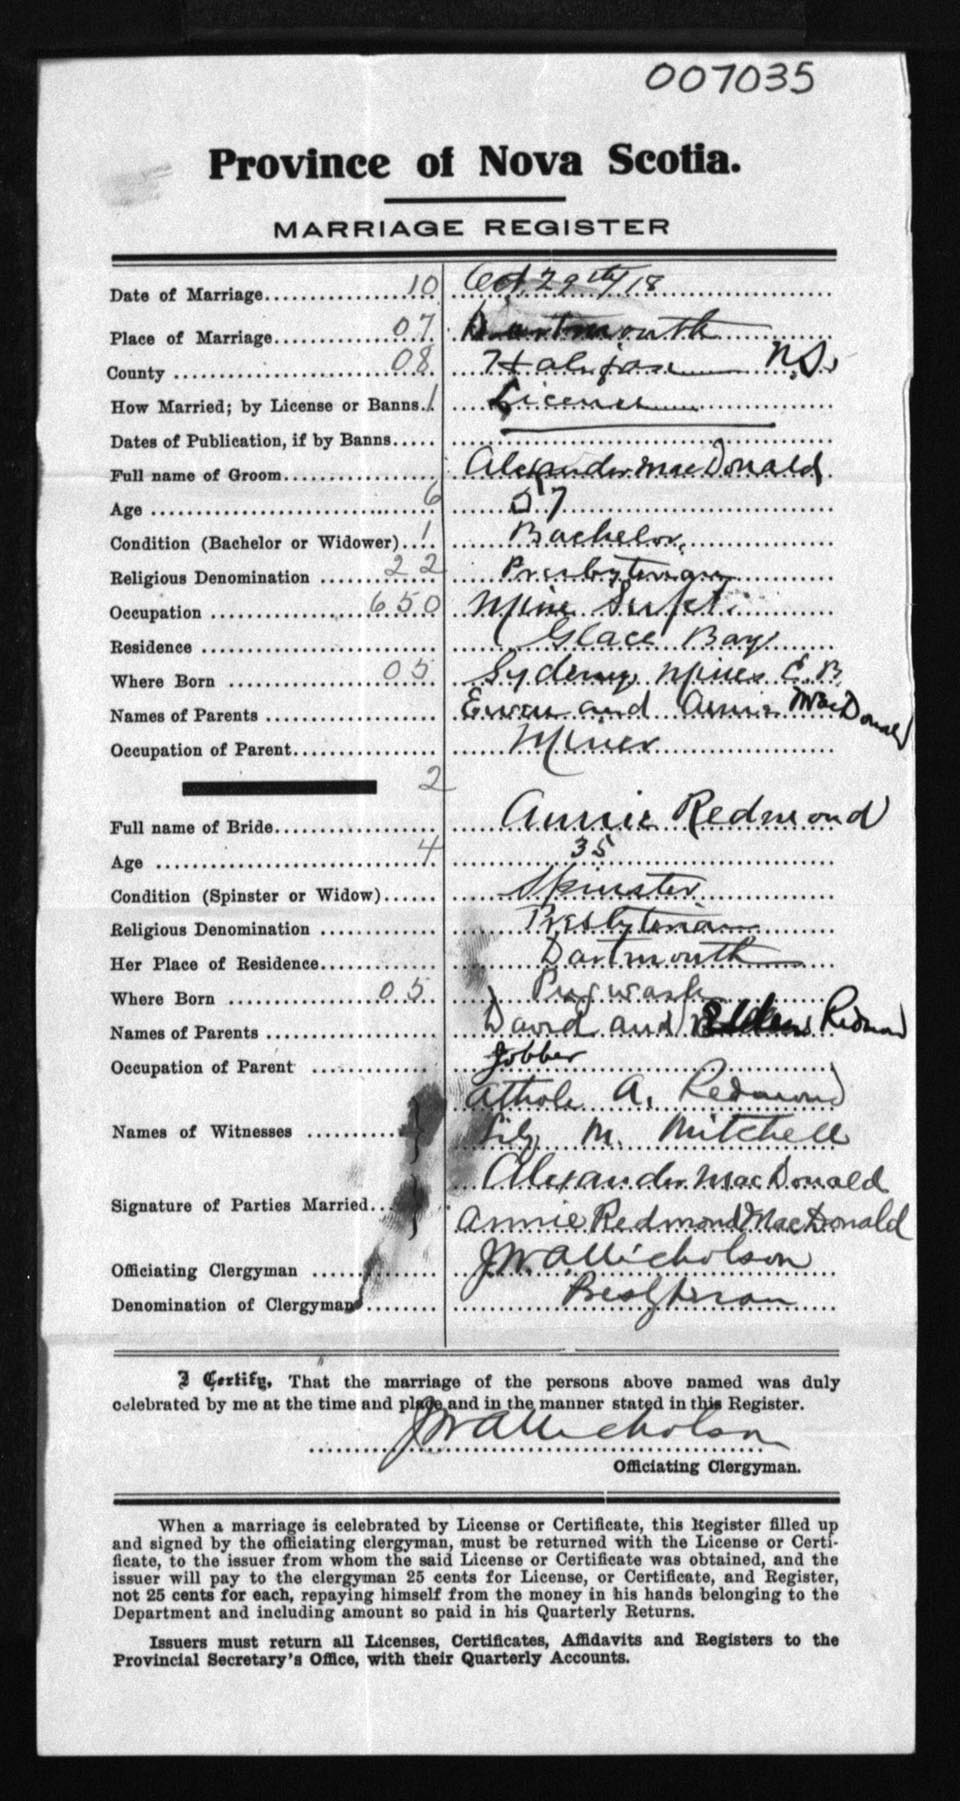 007035
Province of Nova Scotia.
MARRIAGE REGISTER
Date of Marriage 10 Oct. 29th/18
Place of Marriage 07 Dartmouth
County 08 Halifax N.S.
How Married; by License or Banns 1 License
Dates of Publication, if by Banns
Full name of Groom Alexander MacDonald
Age 6 57
Condition (Bachelor or Widower) 1 Bachelor
Religious Denomination 22 Presbyterian
Occupation 650 Mine Supt.
Residence Glace Bay
Where Born 05 Sydney Mines C.B
Names of Parents Ewen and Annie MacDonald
Occupation of Parent Miner
2
Full name of Bride Annie Redmond
Age 4 35
Condition (Spinster or Widow) Spinster
Religious Denomination Presbyterian
Her Place of Residence Dartmouth
Where Born 05 Pugwash
Names of Parents David and Redmond
Occupation of Parent Jobber
Athole A. Redmond
Names of Witnesses } Lily M. Mitchell
Alexander MacDonald
Signature of Parties Married } Annie Redmond MacDonald
Officiating Clergyman J.W.A. Nicholson
Denomination of Clergyman Presbyterian
I Certify, That the marriage of the persons above named was duly
celebrated by me at the time and place and in the manner stated in this Register.
J W A Nicholson
Officiating Clergyman.
When a marriage is celebrated by License or Certificate, this Register filled up
and signed by the officiating clergyman, must be returned with the License or Certi-
ficate, to the issuer from whom the said License or Certificate was obtained, and the
issuer will pay to the clergyman 25 cents for License, or Certificate, and Register,
not 25 cents for each, repaying himself from the money in his hands belonging to the
Department and including amount so paid in his Quarterly Returns.
Issuers must return all Licenses, Certificates, Affidavits and Registers to the
Provincial Secretary's Office, with their Quarterly Accounts.